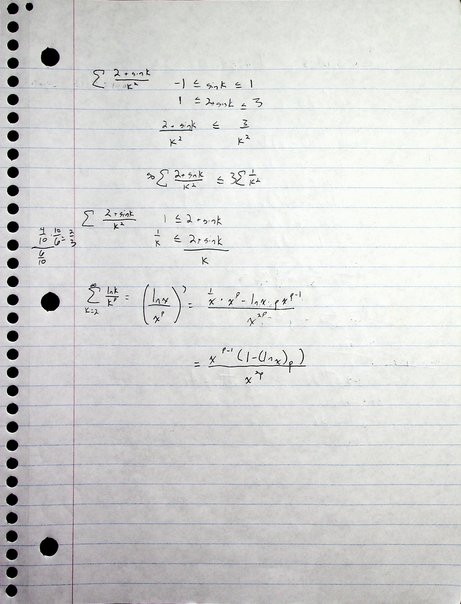 ∑ (2+sin k)/k²    -1 ≤ sin k ≤ 1
1 ≤ 2+sin k ≤ 3
(2+sin k)/k² ≤ 3/k²
so ∑ (2+sin k)/k² ≤ 3∑ 1/k²
∑ (2+sin k)/k²    1 ≤ 2+sin k
1/k ≤ (2+sin k)/k
∑_{k=2}^{∞} ln k/k^p = (ln x/x^p)' = (1/x · x^p - ln x · p x^{p-1})/x^{2p}
= x^{p-1}(1-(ln x)p)/x^{2p}